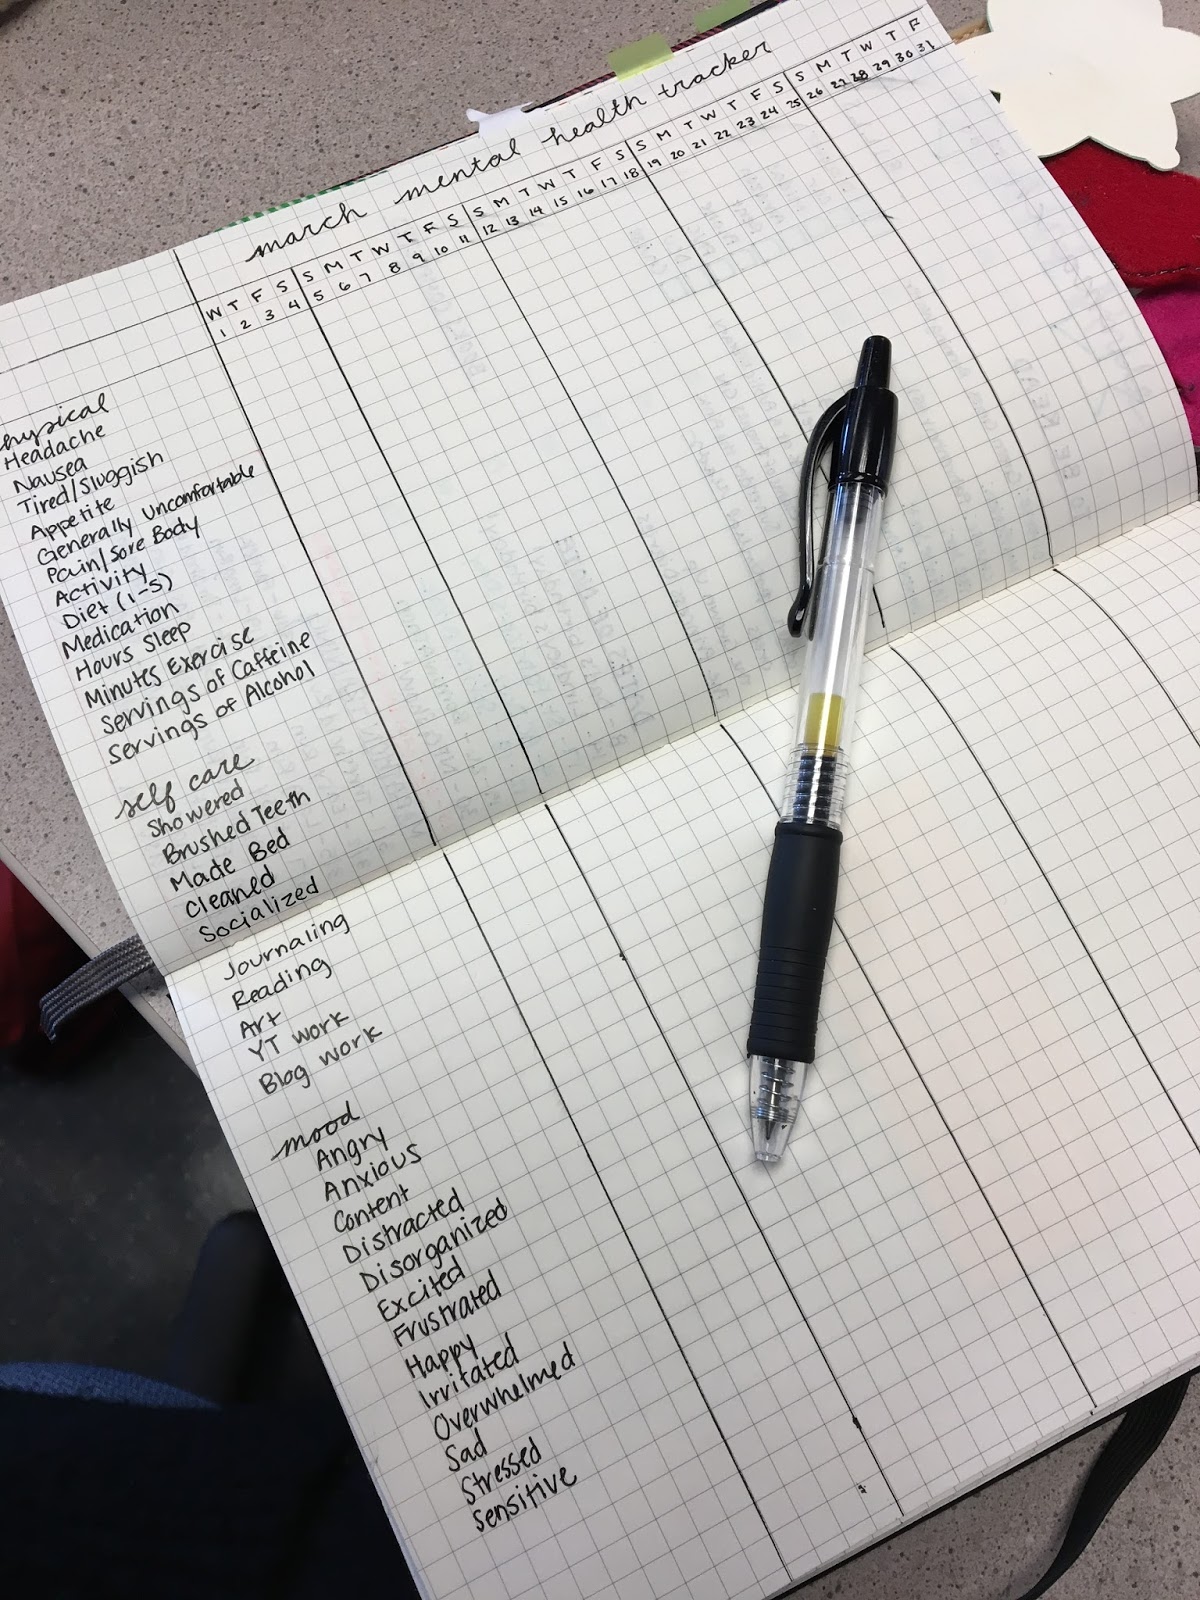 march mental health tracker
W T F S S M T W T F S S M T W T F S S M T W T F S S M T W T F
1 2 3 4 5 6 7 8 9 10 11 12 13 14 15 16 17 18 19 20 21 22 23 24 25 26 27 28 29 30 31
physical
Headache
Nausea
Tired/Sluggish
Appetite
Generally Uncomfortable
Pain/Sore Body
Activity
Diet (1-5)
Medication
Hours Sleep
Minutes Exercise
Servings of Caffeine
Servings of Alcohol
self care
Showered
Brushed Teeth
Made Bed
Cleaned
Socialized
Journaling
Reading
Art
YT work
Blog work
mood
Angry
Anxious
Content
Distracted
Disorganized
Excited
Frustrated
Happy
Irritated
Overwhelmed
Sad
Stressed
Sensitive